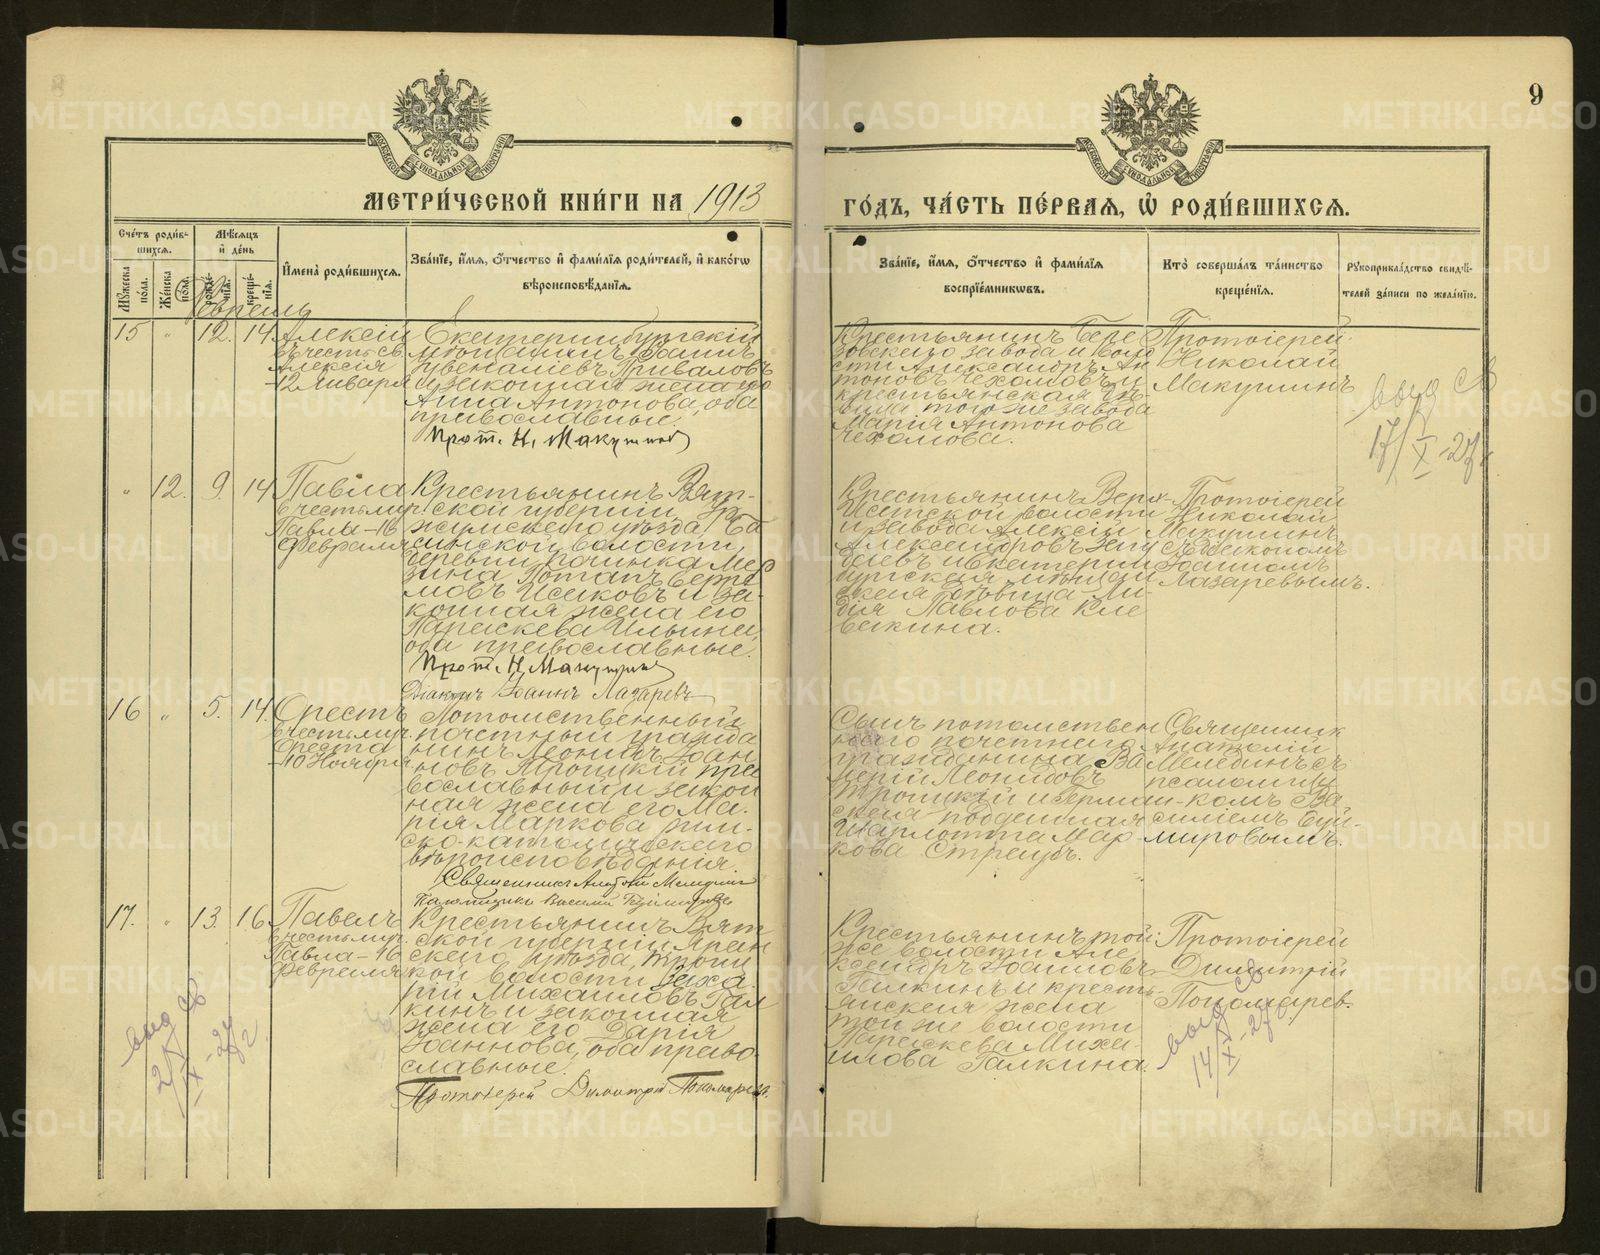 9
МОСКОВСКОЙ СѴНОДАЛЬНОЙ ТИПОГРАФІИ
МОСКОВСКОЙ СѴНОДАЛЬНОЙ ТИПОГРАФІИ
МЕТРИ́ЧЕСКОЙ КНИ́ГИ НА 1913
ГО́ДЪ, ЧА́СТЬ ПЕ́РВАЯ, Ѡ҆ РОДИ́ВШИХСЯ.
Сче́тъ роди́в-
шихся.
Мꙋ́жеска
по́ла.
Же́нска
по́ла.
Мѣ́сяцъ
и҆ де́нь
рожде́-
нїя.
креще́-
нїя.
И҆мена̀ роди́вшихся.
Зва́нїе, и҆́мя, ѻ҆́тчество и҆ фами́лїя роди́телей, и҆ како́гѡ
вѣроисповѣ́данїя.
Зва́нїе, и҆́мя, ѻ҆́тчество и҆ фами́лїя
воспрїе́мникѡвъ.
Кто̀ соверша́лъ та́инство
креще́нїя.
Рꙋкоприкла́дство свидѣ́-
телей за́писи по жела́нїю.
Февраль
15 " 12. 14
Алексій
въ честь Св.
Алексія
12 Января
Екатеринбургскій
мѣщанинъ Іоаннъ
Ювеналіевъ Приваловъ
и законная жена его
Анна Антонова, оба
православные.
Прот. Н. Макушинъ
Крестьянинъ Бере
зовскаго завода и воло
сти Александръ Ан
тоновъ Чехомовъ и
крестьянская дѣ-
вица того же завода
Марія Антонова
Чехомова.
Протоіерей
Николай
Макушинъ
выд св
17/X-27г.
" 12. 9. 14
Павла
въ честь муч.
Павла - 16
Февраля
Крестьянинъ Вят-
ской губерніи, Ур
жумскаго уѣзда,
волости,
деревни починка
Потапъ
и за-
конная жена его
Параскева Ильина,
оба православные.
Прот. Н. Макушинъ
Діаконъ Іоаннъ Лазаревъ
Крестьянинъ Верх-
Исетской волости
и завода Алексій
Александровъ
и Екатерин
бургская мѣщан
ская дѣвица Ли-
дія Павлова Кле
вакина.
Протоіерей
Николай
Макушинъ
съ діакономъ
Іоанномъ
Лазаревымъ.
16 " 5. 14.
Орестъ
въ честь муч.
Ореста
- 10 Ноября
Потомственный
почетный гражда
нинъ Леонидъ Іоан
новъ Троицкій пра
вославный и закон
ная жена его Ма-
рія Маркова рим-
ско-католическаго
вѣроисповѣданія.
Священникъ Анатолій Мелединъ
Псаломщикъ Василій Буймировъ
Сынъ потомствен
наго почетнаго
гражданина Ва
лерій Леонидовъ
Троицкій и Герман-
ская подданная
Шарлотта Мар
кова
Священникъ
Анатолій
Мелединъ съ
псаломщи
комъ Ва
силіемъ Буй-
мировымъ.
17. " 13. 16
Павелъ
въ честь муч.
Павла - 16
февраля
Крестьянинъ Вят
ской губерніи Яран
скаго уѣзда, Троиц
кой волости Заха
рій Михаиловъ Гал
кинъ и законная
жена его Дарія
Іоаннова, оба право-
славные.
Протоіерей Димитрій Пономаревъ.
Крестьянинъ той-
же волости Але
ксандръ Іоанновъ
Галкинъ и кресть-
янская жена
той же волости
Параскева Миха-
илова Галкина.
Протоіерей
Димитрій
Пономарев.
выд св
14/X-27г.
выд св
METRIKI.GASO-URAL.RU